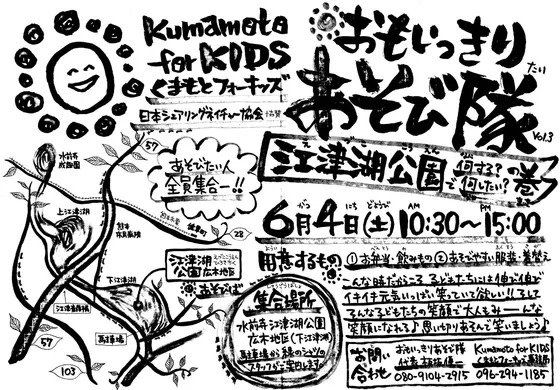 Kumamoto
for KIDS
くまもとフォーキッズ
日本シェアリングネイチャー協会 協賛
おもいっきり
あそび隊
たい
Vol.3
江津湖公園
で
何する?
何したい?
の巻
あそびたい人
全員集合ー!!
6月4日(土) 10:30〜15:00
がつ
にち
AM
PM
用意するもの
①お弁当・飲みもの ②あそびやすい服装・着替え
こんな時だからこそ、子どもたちには伸び伸び
イキイキ元気いっぱい笑っていて欲しい!!そして
そんな子どもたちの笑顔で大人もみーんな
笑顔になれる♪思いっきりあそんで笑いましょう♪
集合場所
水前寺江津湖公園
広木地区(下江津湖)
駐車場から緑のシャツの
スタッフがご案内します
お問い
合わせ
おもいっきりあそび隊
080-9104-2915
Kumamoto for KIDS
096-294-1185
水前寺
成趣園
57
上江津湖
熊本
市民病院
28
下江津湖
江津湖
公園 広木地区
であそぼ
江津斎藤橋
駐車場
57
103